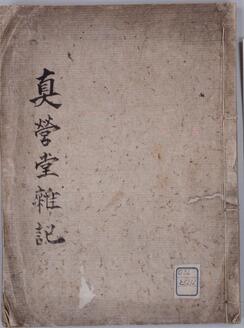 真營堂雜記